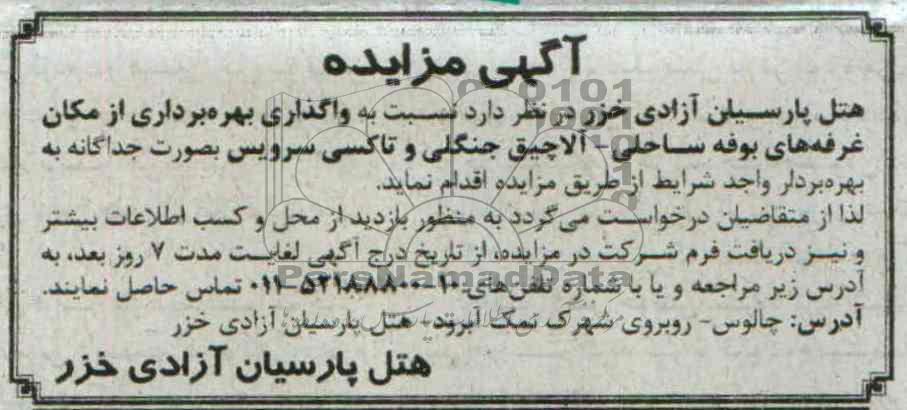 آگهی مزایده
هتل پارسیان آزادی خزر در نظر دارد نسبت به واگذاری بهره‌برداری از مکان
غرفه‌های بوفه ساحلی- آلاچیق جنگلی و تاکسی سرویس بصورت جداگانه به
بهره‌بردار واجد شرایط از طریق مزایده اقدام نماید.
لذا از متقاضیان درخواست می‌گردد به منظور بازدید از محل و کسب اطلاعات بیشتر
و نیز دریافت فرم شرکت در مزایده، از تاریخ درج آگهی لغایت مدت ۷ روز بعد، به
آدرس زیر مراجعه و یا با شماره تلفن‌های تماس حاصل نمایند.
آدرس: چالوس- روبروی شهرک نمک آبرود- هتل پارسیان آزادی خزر
هتل پارسیان آزادی خزر
ParsNamadData